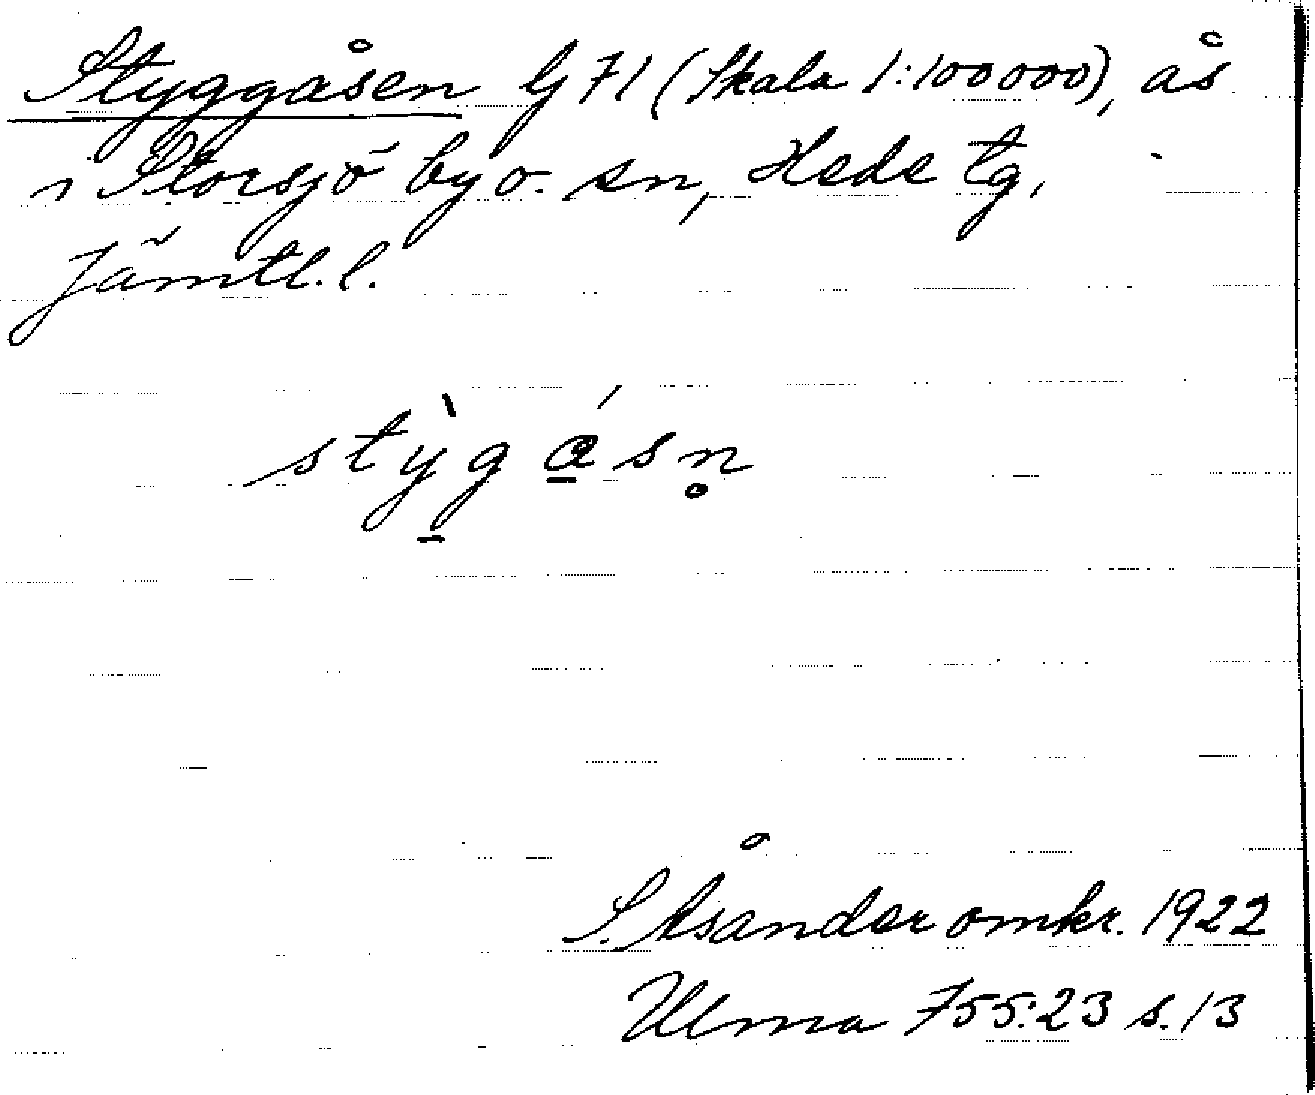 Styggåsen Gj 71 (Skala 1:100000), ås
i Storsjö by o. sn, Hede tg,
Jämtl. l.
stỳ̠gá̠sn̥
S. Åsander omkr. 1922
Ulma 755:23 s. 13